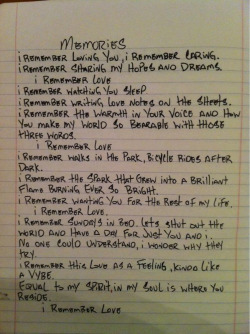 MEMORIES
i REMEMBER LOVING YOU, i REMEMBER CARING.
i REMEMBER SHARING MY HOPES AND DREAMS.
i REMEMBER LOVE
i REMEMBER WATCHING YOU SLEEP
i REMEMBER WRITING LOVE NOTES ON THE SHEETS.
i REMEMBER THE WARMTH IN YOUR VOICE AND HOW
YOU MAKE MY WORLD SO BEARABLE WITH THOSE
THREE WORDS.
i REMEMBER LOVE
i REMEMBER WALKS IN THE PARK, BICYCLE RIDES AFTER
DARK.
i REMEMBER THE SPARK THAT GREW INTO A BRILLIANT
FLAME BURNING EVER SO BRIGHT.
i REMEMBER WANTING YOU FOR THE REST OF MY LIFE.
i REMEMBER LOVE.
i REMEMBER SUNDAYS IN BED. LETS SHUT OUT THE
WORLD AND HAVE A DAY FOR JUST YOU AND i.
NO ONE COULD UNDERSTAND, i WONDER WHY THEY
TRY.
i REMEMBER THIS LOVE AS A FEELING, KINDA LIKE
A VYBE.
EQUAL TO MY SPIRIT, IN MY SOUL IS WHERE YOU
RESIDE.
i REMEMBER LOVE